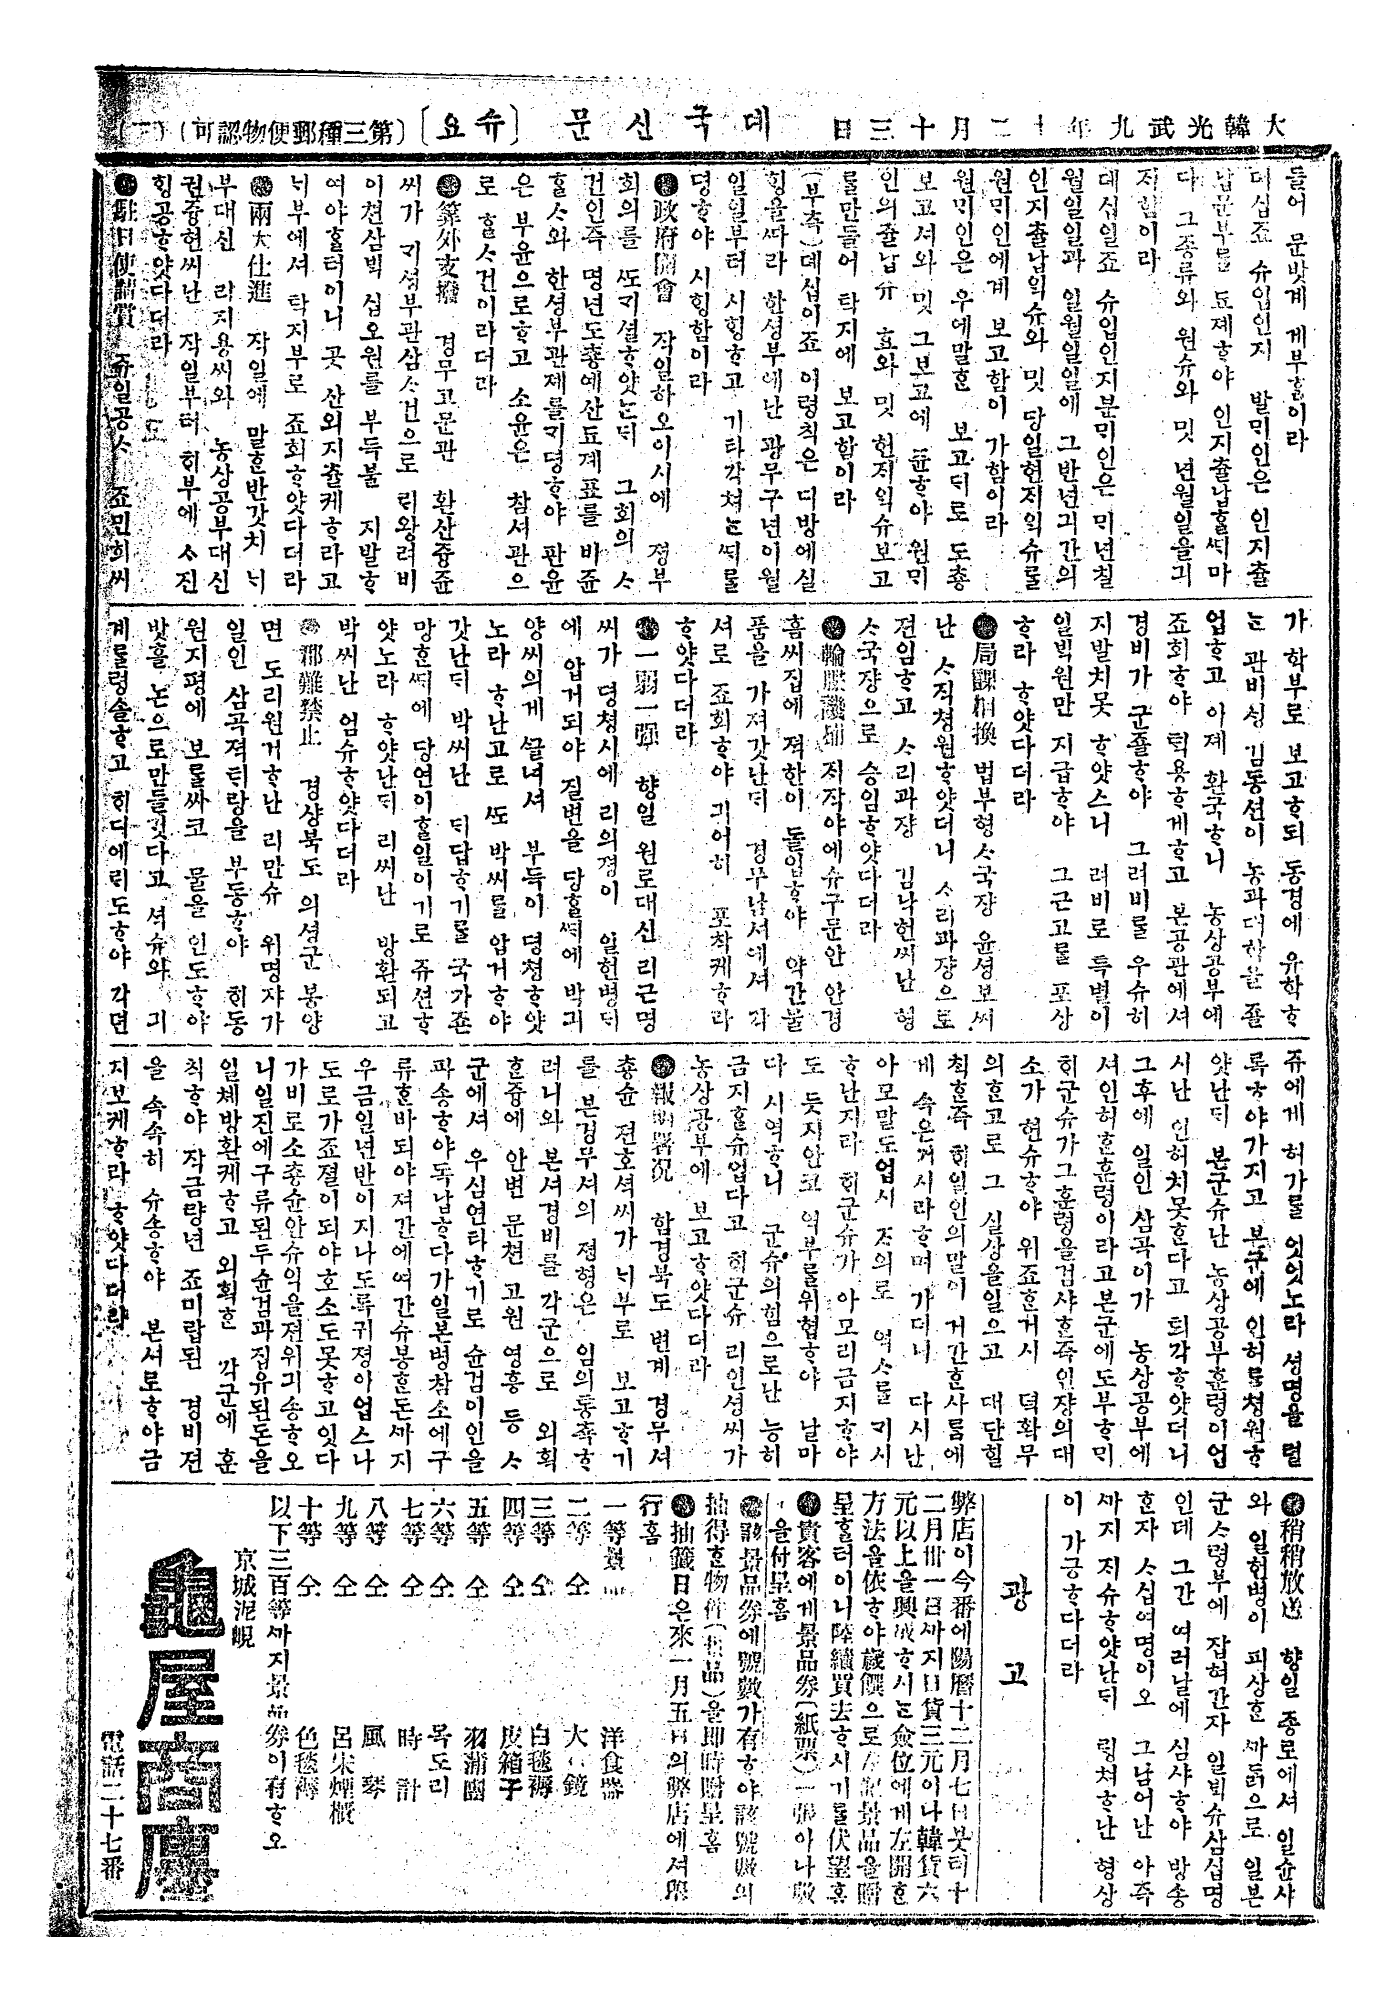 大韓光武九年十二月十三日 뎨국신문 〔슈요〕 (第三種郵便物認可) (二)
들어 문밧게 게부홀이라
뎨십죠 슈입인지 발미인은 인지츌
납문부를 됴졔ᄒᆞ야 인지츌납홀ᄯᆡ마
다 그종류와 원슈와 밋 년월일을긔
ᄌᆡ홈이라
뎨십일죠 슈입인지분ᄆᆡ인은 ᄆᆡ년칠
월일일과 일월일일에 그반년긔간의
인지츌납익슈와 밋 당일현ᄌᆡ익슈를
원ᄆᆡ인에게 보고함이 가함이라
원ᄆᆡ인은 우에말ᄒᆞᆫ 보고ᄃᆡ로 도총
보고셔와 밋 그보고에 ᄯᆞᆫᄒᆞ야 원ᄆᆡ
인의츌납슈 효와 밋 현ᄌᆡ익슈보고
를만들어 탁지에 보고함이라
(부측)뎨십이죠 이령칙은 디방에실
ᄒᆡᆼ을ᄯᆞ라 한셩부에난 광무구년이월
일일부터 시ᄒᆡᆼᄒᆞ고 기타각쳐ᄂᆞᆫᄯᅡ로
뎡ᄒᆞ야 시ᄒᆡᆼ함이라
●政府開會 작일하오이시에 졍부
회의를 ᄯᅩᄀᆡ셜ᄒᆞ얏ᄂᆞᆫᄃᆡ 그회의 ᄉᆞ
건인즉 명년도총예산됴졔표를 바쥰
ᄒᆞᆯᄉᆞ와 한셩부관졔를ᄀᆡ뎡ᄒᆞ야 판윤
은 부윤으로ᄒᆞ고 소윤은 참셔관으
로 ᄒᆞᆯᄉᆞ건이라더라
●算外支撥 경무고문관 환산즁쥰
씨가 ᄀᆡ셩부관삼ᄉᆞ건으로 ᄅᆡ왕려비
이쳔삼ᄇᆡᆨ 십오원를 부득불 지발ᄒᆞ
여야ᄒᆞᆯ터이니 곳 산외지츌케ᄒᆞ라고
ᄂᆡ부에셔 탁지부로 죠회ᄒᆞ얏다더라
●兩大仕進 작일에 말ᄒᆞᆫ반갓치 ᄂᆡ
부대신 리지용씨와 농상공부대신
권즁현씨난 작일부터 ᄒᆡ부에 ᄉᆞ진
ᄒᆡᆼ공ᄒᆞ얏다더라
●駐日使請賞 쥬일공ᄉᆞ 죠민희씨
가 학부로 보고ᄒᆞ되 동경에 유학ᄒᆞ
ᄂᆞᆫ 관비ᄉᆡᆼ 김동션이 농과대학을 졸
업ᄒᆞ고 이졔 환국ᄒᆞ니 농상공부에
죠회ᄒᆞ야 ᄐᆡᆨ용ᄒᆞ게ᄒᆞ고 본공관에셔
경비가 군졸ᄒᆞ야 그려비를 우슈히
지발치못 ᄒᆞ얏스니 려비로 특별이
일ᄇᆡᆨ원만 지급ᄒᆞ야 그근고를 포상
ᄒᆞ라 ᄒᆞ얏다더라
●局課相換 법부형ᄉᆞ국쟝 윤셩보씨
난 ᄉᆞ직쳥원ᄒᆞ얏더니 ᄉᆞ리과쟝으로
젼임ᄒᆞ고 ᄉᆞ리과쟝 김낙헌씨난 형
ᄉᆞ국쟝으로 승임ᄒᆞ얏다더라
●輪照譏捕 ᄌᆡ작야에슈구문안 안경
흠씨집에 젹한이 돌입ᄒᆞ야 약간물
품을 가져갓난ᄃᆡ 경무남셔에셔 각
셔로 죠회ᄒᆞ야 긔어히 포착케ᄒᆞ라
ᄒᆞ얏다더라
●一弱一强 향일 원로대신 리근명
씨가 뎡쳥시에 리의졍이 일헌병ᄃᆡ
에 압거되야 질변을 당ᄒᆞᆯᄯᆡ에 박긔
양씨의게 ᄭᅳᆯ녀셔 부득이 뎡쳥ᄒᆞ얏
노라 ᄒᆞ난고로 ᄯᅩ 박씨를 압거ᄒᆞ야
갓난ᄃᆡ 박씨난 ᄃᆡ답ᄒᆞ기를 국가죤
망ᄒᆞᆫᄯᆡ에 당연이ᄒᆞᆯ일이기로 쥬션ᄒᆞ
얏노라 ᄒᆞ얏난ᄃᆡ 리씨난 방환되고
박씨난 엄슈ᄒᆞ얏다더라
●郡難禁止 경상북도 의셩군 봉양
면 도리원거ᄒᆞ난 리만슈 위명쟈가
일인 삼곡젹ᄐᆡ랑을 부동ᄒᆞ야 ᄒᆡ동
원지평에 보를싸코 물을 인도ᄒᆞ야
밧흘 논으로만들깃다고 셔슈와 긔
계를령솔ᄒᆞ고 ᄒᆡ디에ᄅᆡ도ᄒᆞ야 각뎐
쥬에게 허가를 엇엇노라 셩명을 렬
록ᄒᆞ야가지고 본군에 인허를쳥원ᄒᆞ
얏난ᄃᆡ 본군슈난 농상공부훈령이업
시난 인허치못ᄒᆞᆫ다고 퇴각ᄒᆞ얏더니
그후에 일인 삼곡이가 농상공부에
셔인허ᄒᆞᆫ훈령이라고본군에도부ᄒᆞᄆᆡ
ᄒᆡ군슈가그훈령을검사ᄒᆞᆫ즉인쟝의대
소가 현슈ᄒᆞ야 위죠ᄒᆞᆫ거시 뎍확무
의ᄒᆞᆫ고로 그 실상을일으고 대단힐
ᄎᆡᆨᄒᆞᆫ즉 ᄒᆡ일인의말이 거간ᄒᆞᆫ사ᄅᆞᆷ에
게 속은거시라ᄒᆞ며 가더니 다시난
아모말도업시 ᄌᆞ의로 역ᄉᆞ를 ᄀᆡ시
ᄒᆞ난지라 ᄒᆡ군슈가 아모리금지ᄒᆞ야
도 듯지안코 역부를위협ᄒᆞ야 날마
다 시역ᄒᆞ니 군슈의힘으로난 능히
금지ᄒᆞᆯ슈업다고 ᄒᆡ군슈 리인셩씨가
농상공부에 보고ᄒᆞ얏다더라
●報明署況 함경북도 변계 경무셔
춍슌 젼호셕씨가 ᄂᆡ부로 보고ᄒᆞ기
를 본경무셔의 졍형은 임의통쵹ᄒᆞ
러니와 본셔경비를 각군으로 외획
ᄒᆞᆫ즁에 안변 문쳔 고원 영흥 등 ᄉᆞ
군에셔 우심연타ᄒᆞ기로 슌검이인을
파송ᄒᆞ야독납ᄒᆞ다가일본병참소에구
류ᄒᆞᆫ바되야져간에여간슈봉ᄒᆞᆫ돈ᄭᆞ지
우금일년반이지나도록귀졍이업스나
도로가죠졀이되야호소도못ᄒᆞ고잇다
가비로소춍슌안슈익을젼위긔송ᄒᆞ오
니일진에구류된두슌검과집유된돈을
일쳬방환케ᄒᆞ고 외획ᄒᆞᆫ 각군에 훈
칙ᄒᆞ야 작금량년 죠미랍된 경비젼
을 속속히 슈송ᄒᆞ야 본셔로ᄒᆞ야금
지보케ᄒᆞ라 ᄒᆞ얏다더라
●稍稍放送 향일 죵로에셔 일슌사
와 일헌병이 피상ᄒᆞᆫ ᄭᆞᄃᆞᆰ으로 일본
군ᄉᆞ령부에 잡혀간쟈 일ᄇᆡᆨ슈삼십명
인데 그간 여러날에 심사ᄒᆞ야 방송
ᄒᆞᆫ쟈 ᄉᆞ십여명이오 그남어난 아즉
ᄭᆞ지 ᄌᆡ슈ᄒᆞ얏난ᄃᆡ 링쳐ᄒᆞ난 형상
이 가긍ᄒᆞ다더라
광고
弊店이今番에陽曆十二月七日붓터十
二月卅一日ᄭᆞ지日貨三元이나韓貨六
元以上을興成ᄒᆞ시ᄂᆞᆫ僉位에게左開ᄒᆞᆫ
方法을依ᄒᆞ야歲饌으로左記景品을贈
呈ᄒᆞᆯ터이니陸續買去ᄒᆞ시기를伏望홈
●貴客에게景品券(紙票)一張아나敬
을付呈홈
●該景品券에號數가有ᄒᆞ야該號數의
抽得ᄒᆞᆫ物件(景品)을即時贈呈홈
●抽籤日은來一月五日의弊店에셔擧
行홈
一等景品 洋食器
二等 仝 大鏡
三等 仝 白毯褥
四等 仝 皮箱子
五等 仝 羽蒲團
六等 仝 목도리
七等 仝 時計
八等 仝 風琴
九等 仝 呂宋煙櫃
十等 仝 色毯褥
以下三百等ᄭᆞ지景品券이有ᄒᆞ오
京城泥峴
龜屋商廛
電話二十七番